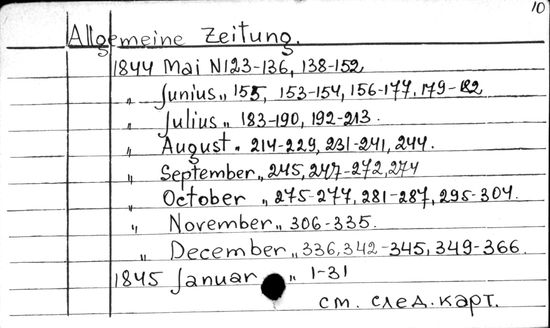 10
Allgemeine Zeitung.
1844 Mai N123-136, 138-152
„ Junius „ 155, 153-154, 156-177, 179-182
„ Julius „ 183-190, 192-213.
„ August „ 214-229, 231-241, 244.
„ September „ 245, 247-272, 274
„ October „ 275-277, 281-287, 295-304.
„ November „ 306-335.
„ December „ 336, 342-345, 349-366.
1845 Januar „ 1-31
см. след. карт.